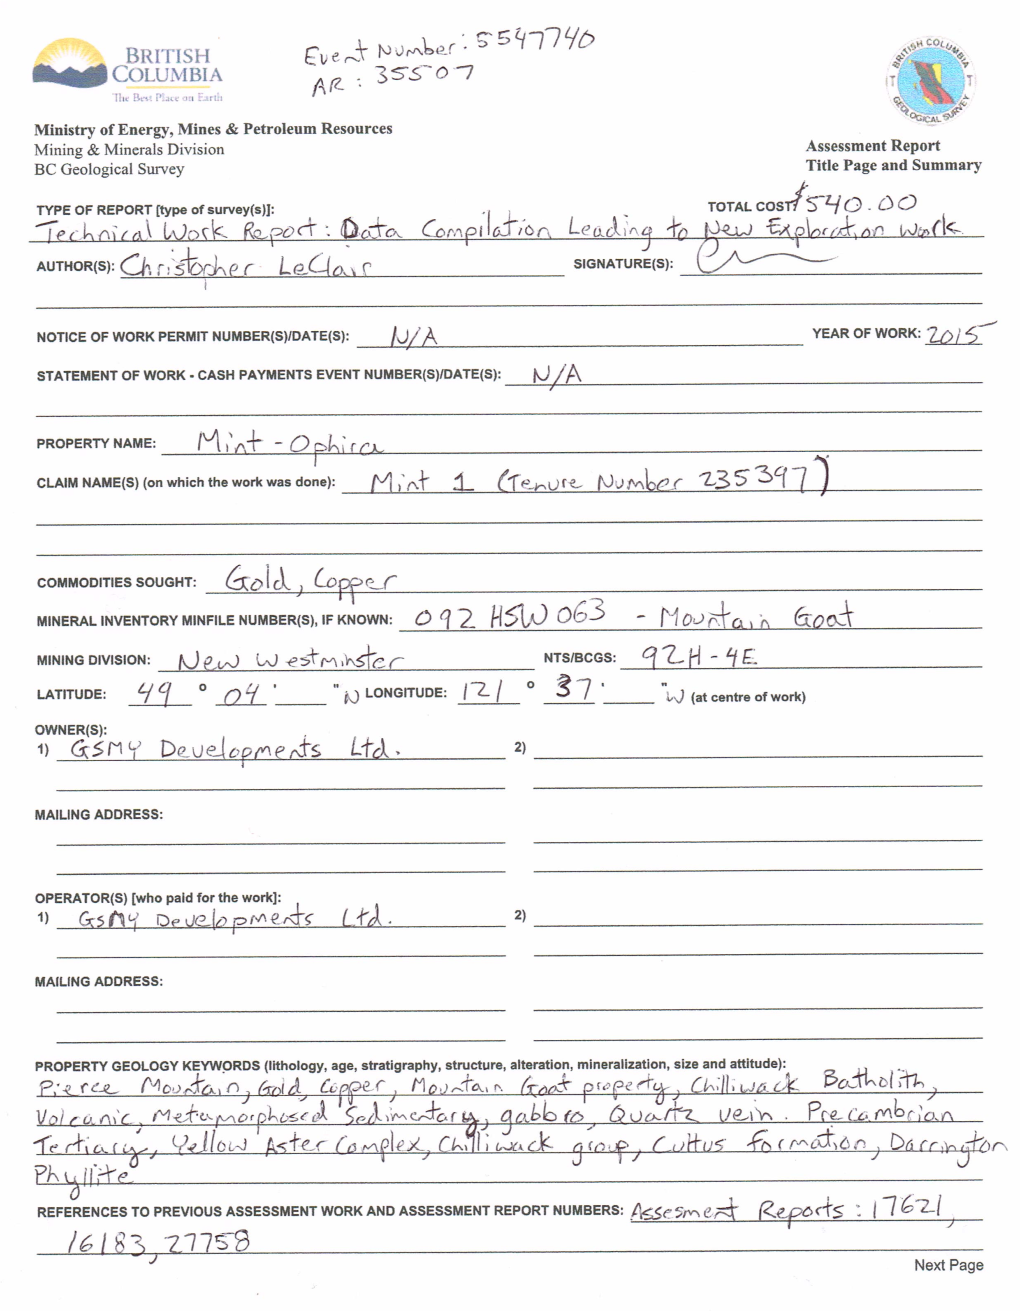 BRITISH
COLUMBIA
The Best Place on Earth
Event Number: 5547740
AR: 35507
BRITISH COLUMBIA
GEOLOGICAL SURVEY
Ministry of Energy, Mines & Petroleum Resources
Mining & Minerals Division
BC Geological Survey
Assessment Report
Title Page and Summary
TYPE OF REPORT [type of survey(s)]: TOTAL COST: $540.00
Technical Work Report: Data Compilation Leading to New Exploration Work
AUTHOR(S): Christopher LeClair SIGNATURE(S):
NOTICE OF WORK PERMIT NUMBER(S)/DATE(S): N/A YEAR OF WORK: 2015
STATEMENT OF WORK - CASH PAYMENTS EVENT NUMBER(S)/DATE(S): N/A
PROPERTY NAME: Mint - Ophira
CLAIM NAME(S) (on which the work was done): Mint 1 (Tenure Number 235397)
COMMODITIES SOUGHT: Gold, Copper
MINERAL INVENTORY MINFILE NUMBER(S), IF KNOWN: 092 HSW 063 - Mountain Goat
MINING DIVISION: New Westminster NTS/BCGS: 92H-4E
LATITUDE: 49 ° 04 ' " N LONGITUDE: 121 ° 37 ' " W (at centre of work)
OWNER(S):
1) GSMY Developments Ltd. 2)
MAILING ADDRESS:
OPERATOR(S) [who paid for the work]:
1) GSMY Developments Ltd. 2)
MAILING ADDRESS:
PROPERTY GEOLOGY KEYWORDS (lithology, age, stratigraphy, structure, alteration, mineralization, size and attitude):
Pierce Mountain, Gold, Copper, Mountain Goat property, Chilliwack Batholith,
Volcanic, Metamorphosed Sedimentary, gabbro, Quartz vein. Precambrian
Tertiary, Yellow Aster Complex, Chilliwack group, Cultus formation, Darrington
Phyllite
REFERENCES TO PREVIOUS ASSESSMENT WORK AND ASSESSMENT REPORT NUMBERS: Assesment Reports: 17621,
16183, 27758
Next Page